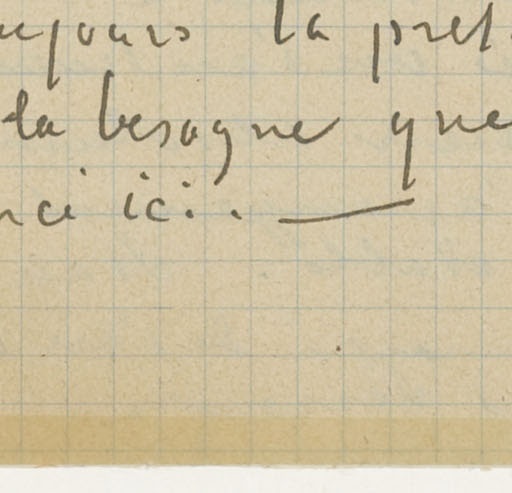 ujours la pref
la besogne que
nci ici. —